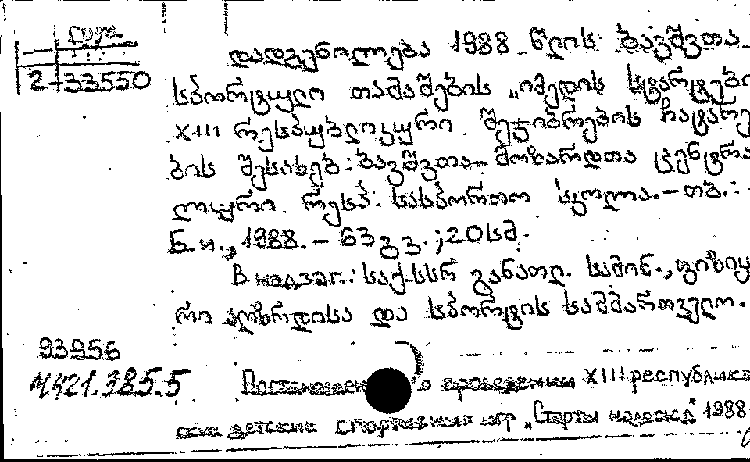 груз.
2-33550
დადგენილება 1988 წლის ბავშვთა
სპორტული თამაშების „იმედის სტარტები
XIII რესპუბლიკური შეჯიბრების ჩატარე
ბის შესახებ: ბავშვთა მოზარდთა ცენტრა
ლური რესპ. სასპორთო სკოლა.—თბ.:
Б.и., 1988.— 63 გვ.; 20 სმ.
В надзаг.: საქ.სსრ განათლ. სამინ., ფიზიკუ
რი აღზრდისა და სპორტის სამმართველო.
93956
М421.385.5
о проведении XIII республикан
ских детских спортивных игр „Старты надежд" 1988